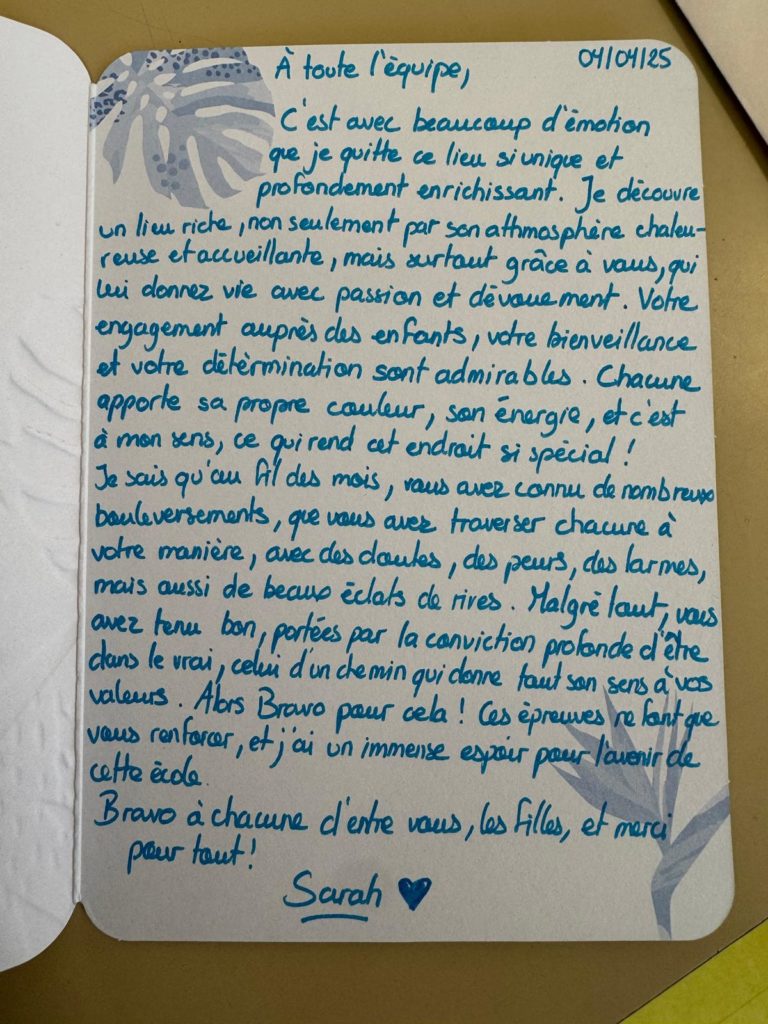 À toute l'équipe,
04/04/25
C'est avec beaucoup d'émotion
que je quitte ce lieu si unique et
profondément enrichissant. Je découvre
un lieu riche, non seulement par son athmosphère chaleu-
reuse et accueillante, mais surtout grâce à vous, qui
lui donnez vie avec passion et dévouement. Votre
engagement auprès des enfants, votre bienveillance
et votre détermination sont admirables. Chacune
apporte sa propre couleur, son énergie, et c'est
à mon sens, ce qui rend cet endroit si spécial !
Je sais qu'au fil des mois, vous avez connu de nombreux
bouleversements, que vous avez traverser chacune à
votre manière, avec des doutes, des peurs, des larmes,
mais aussi de beaux éclats de rires. Malgré tout, vous
avez tenu bon, portées par la conviction profonde d'être
dans le vrai, celui d'un chemin qui donne tout son sens à vos
valeurs. Alors Bravo pour cela ! Ces épreuves ne font que
vous renforcer, et j'ai un immense espoir pour l'avenir de
cette école.
Bravo à chacune d'entre vous, les filles, et merci
pour tout !
Sarah